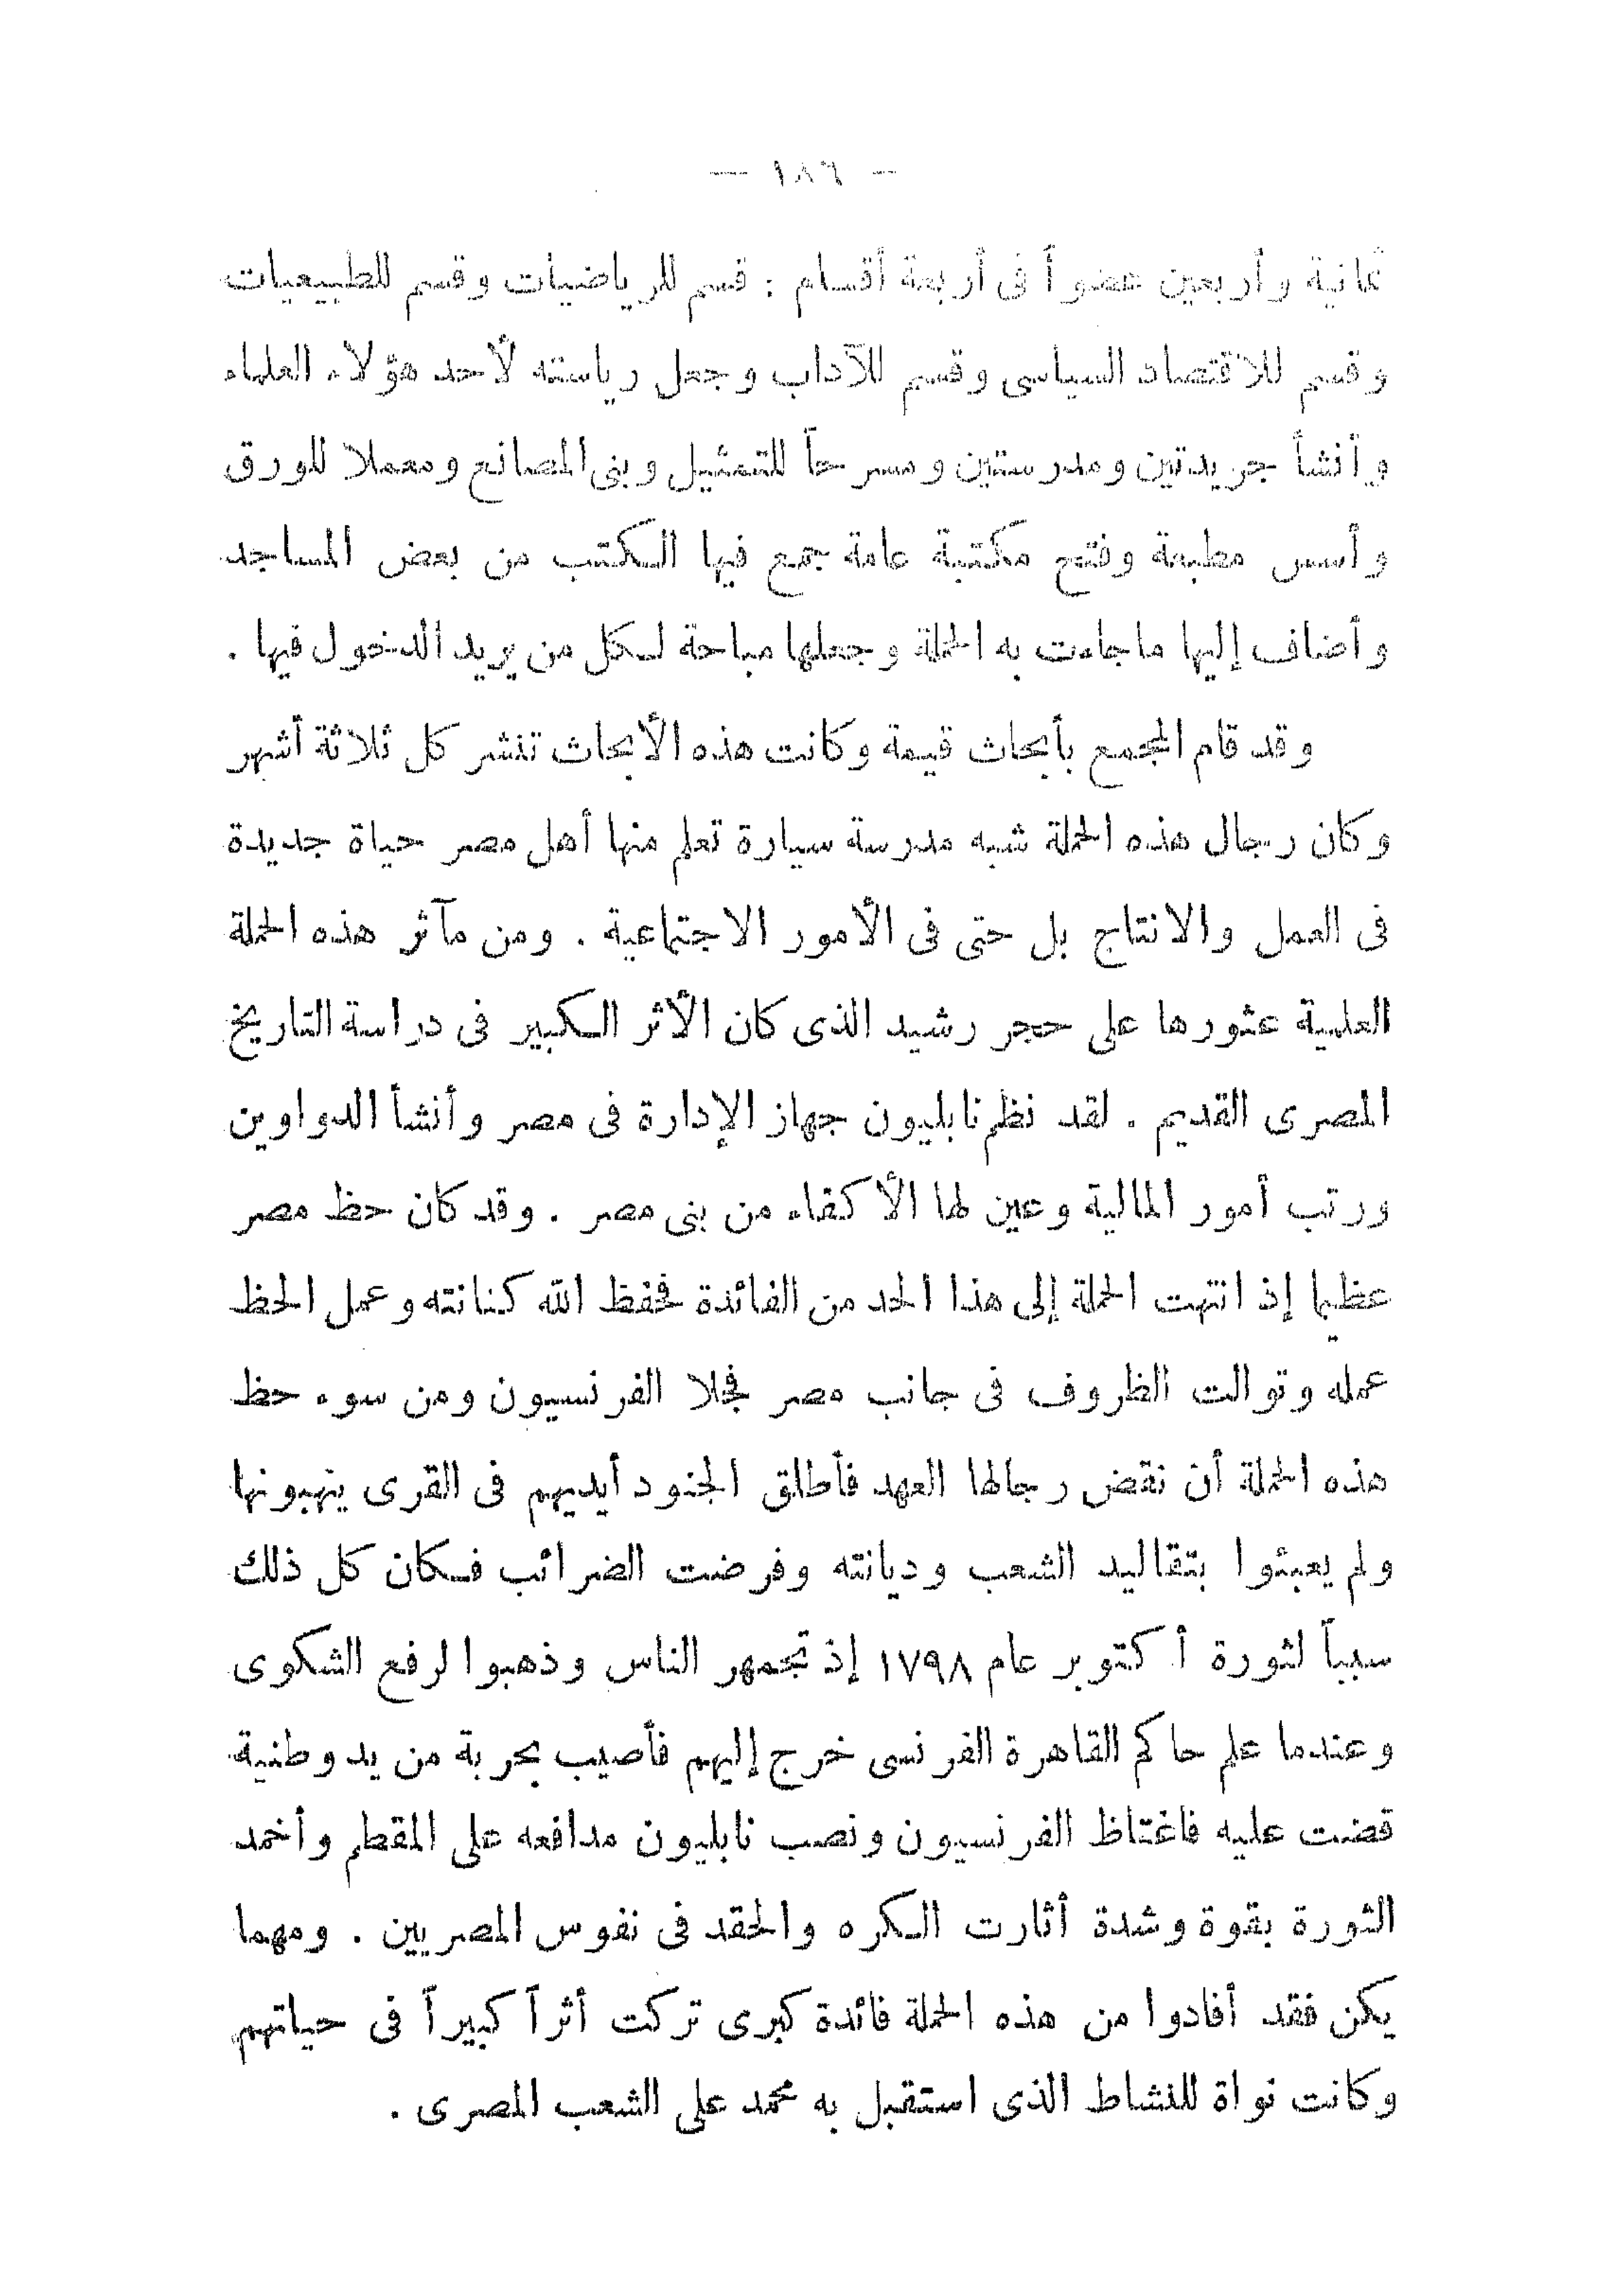 — ١٨٦ —
ثمانية وأربعين عضواً فى أربعة أقسام : قسم للرياضيات وقسم للطبيعيات
وقسم للاقتصاد السياسى وقسم للآداب وجعل رياسته لأحد هؤلاء العلماء
وأنشأ جريدتين ومدرستين ومسرحاً للتمثيل وبنى المصانع ومعملا للورق
وأسس مطبعة وفتح مكتبة عامة جمع فيها الكتب من بعض المساجد
وأضاف إليها ماجاءت به الحملة وجعلها مباحة لكل من يريد الدخول فيها .
وقد قام المجمع بأبحاث قيمة وكانت هذه الأبحاث تنشر كل ثلاثة أشهر
وكان رجال هذه الحملة شبه مدرسة سيارة تعلم منها أهل مصر حياة جديدة
فى العمل والانتاج بل حتى فى الأمور الاجتماعية . ومن مآثر هذه الحملة
العلمية عثورها على حجر رشيد الذى كان الأثر الكبير فى دراسة التاريخ
المصرى القديم . لقد نظم نابليون جهاز الإدارة فى مصر وأنشأ الدواوين
ورتب أمور المالية وعين لها الأكفاء من بنى مصر . وقد كان حظ مصر
عظيما إذ انتهت الحملة إلى هذا الحد من الفائدة فحفظ الله كنانته وعمل الحظ
عمله وتوالت الظروف فى جانب مصر فجلا الفرنسيون ومن سوء حظ
هذه الحملة أن نقض رجالها العهد فأطلق الجنود أيديهم فى القرى ينهبونها
ولم يعبئوا بتقاليد الشعب وديانته وفرضت الضرائب فكان كل ذلك
سبباً لثورة أكتوبر عام ١٧٩٨ إذ تجمهر الناس وذهبوا لرفع الشكوى
وعندما علم حاكم القاهرة الفرنسى خرج إليهم فأصيب بحربة من يد وطنية
قضت عليه فاغتاظ الفرنسيون ونصب نابليون مدافعه على المقطم وأخمد
الثورة بقوة وشدة أثارت الكره والحقد فى نفوس المصريين . ومهما
يكن فقد أفادوا من هذه الحملة فائدة كبرى تركت أثراً كبيراً فى حياتهم
وكانت نواة للنشاط الذى استقبل به محمد على الشعب المصرى .